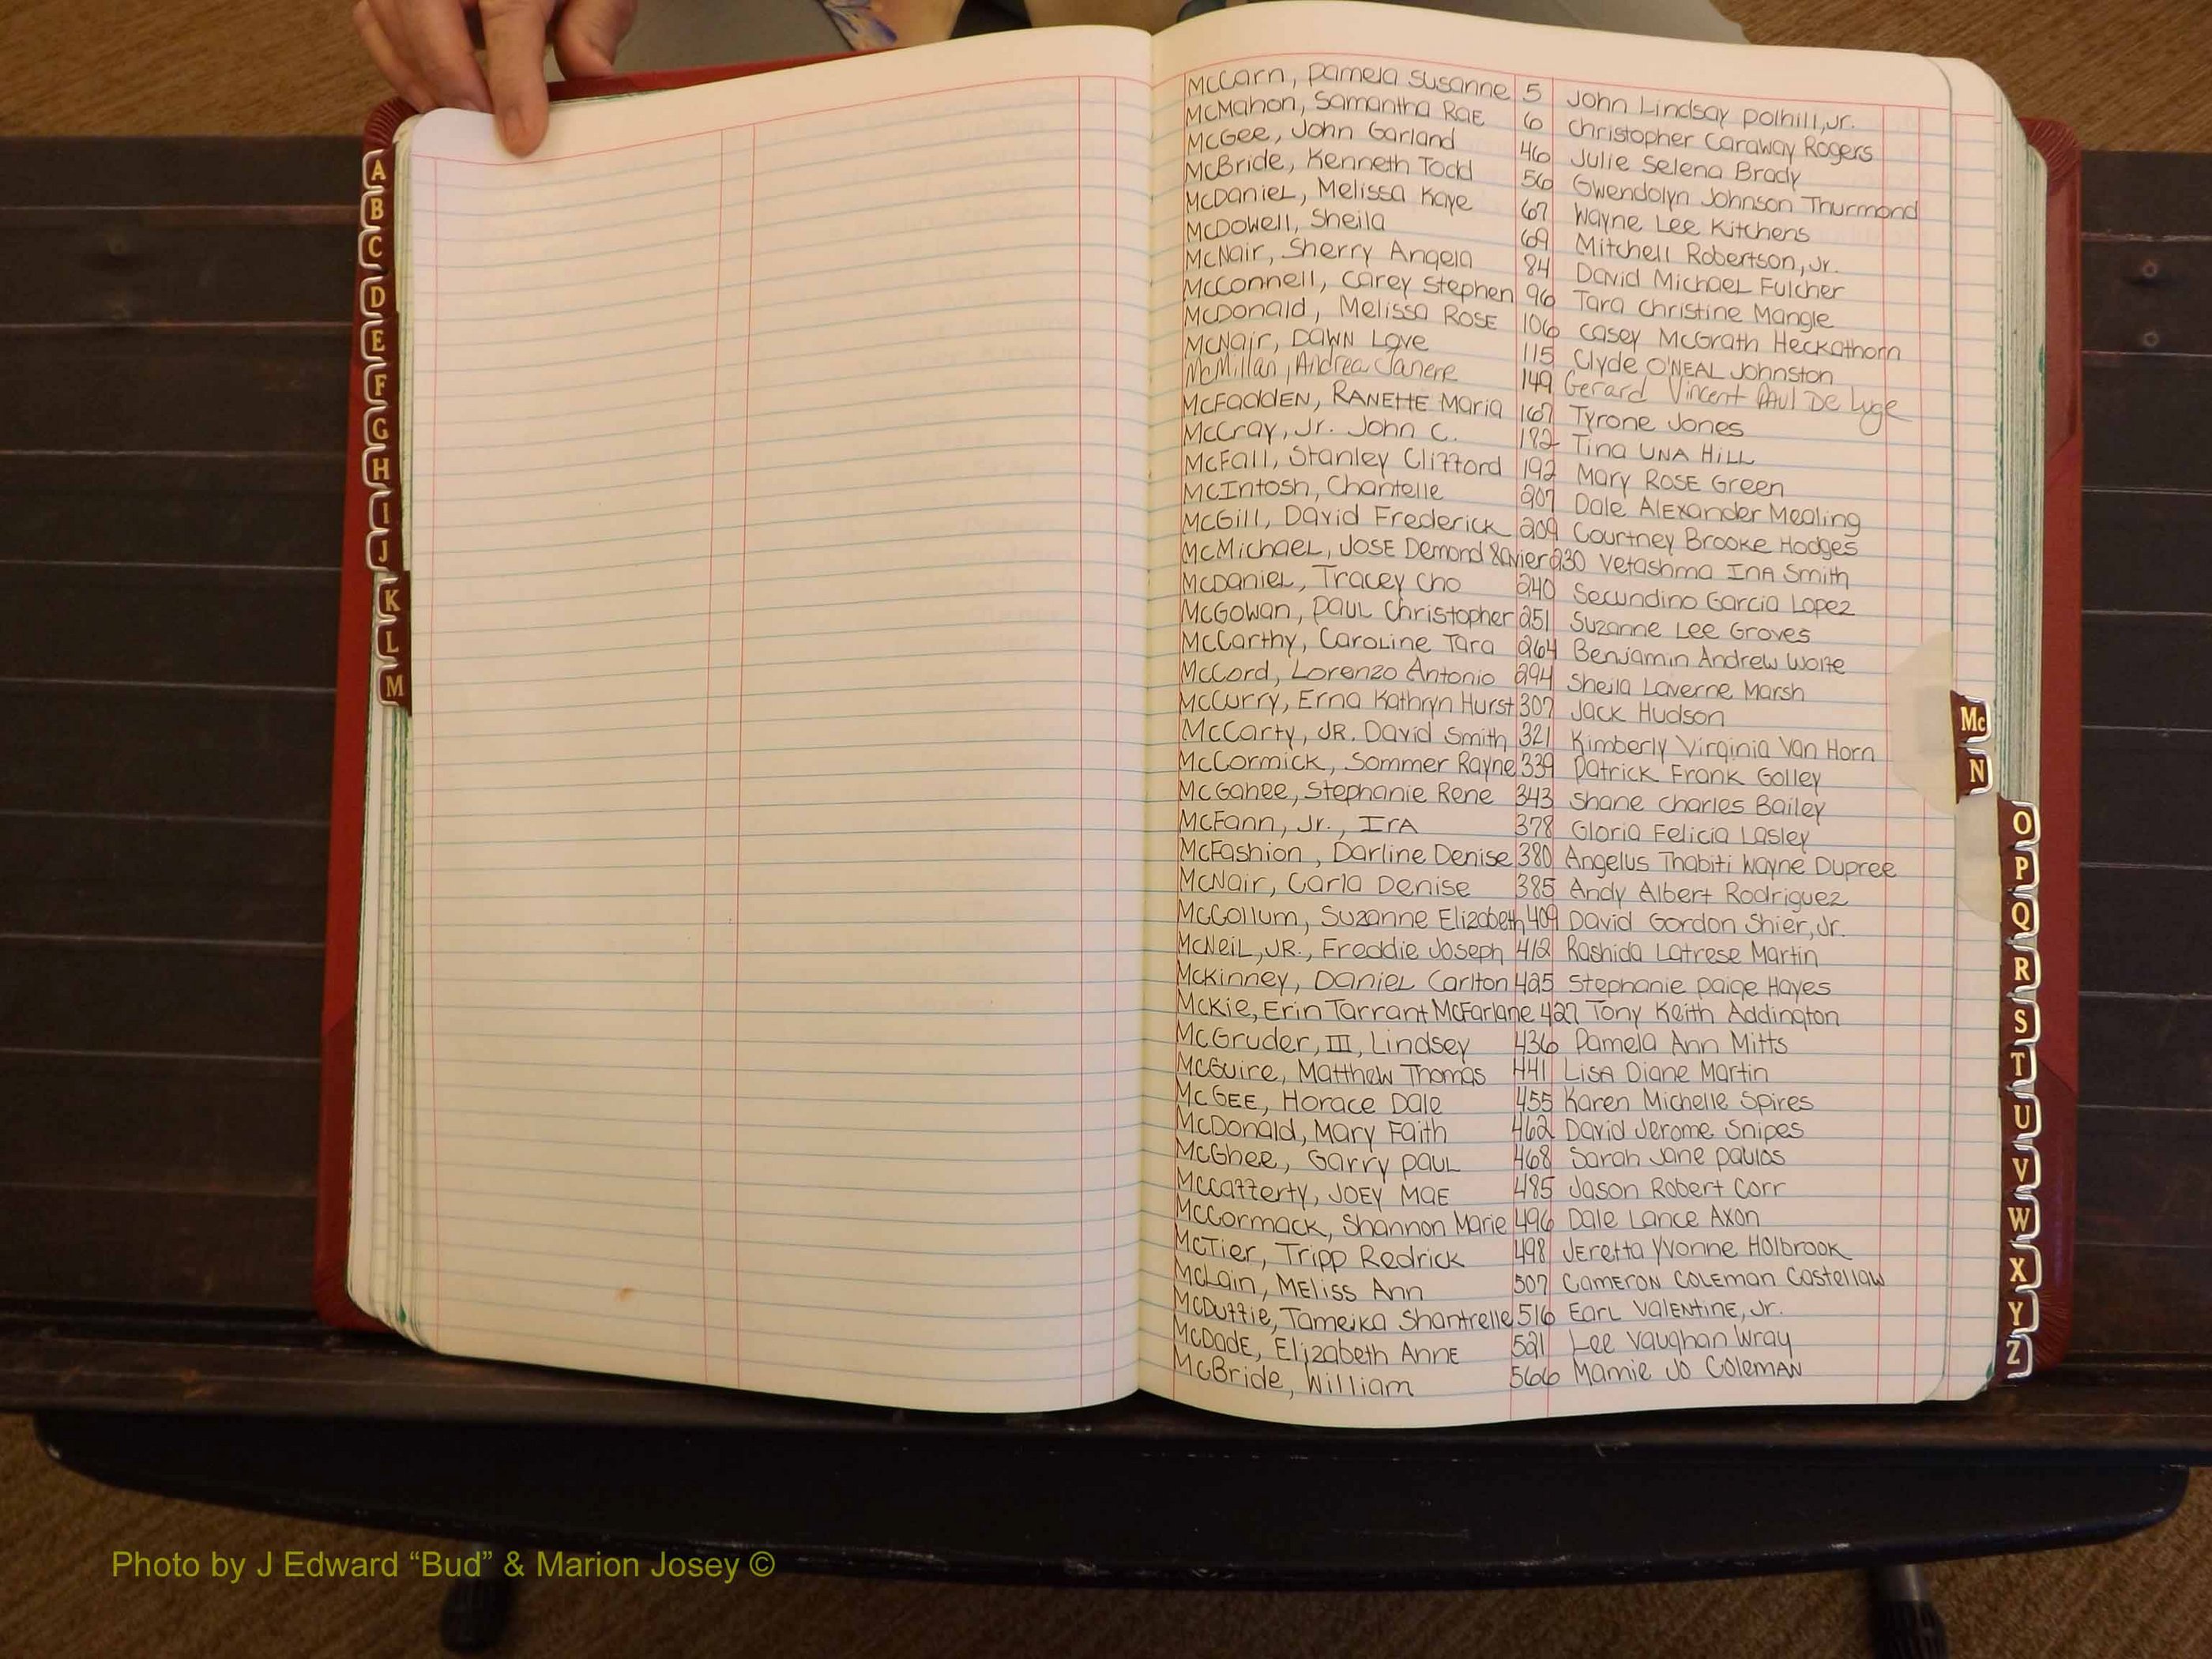 McCarn, Pamela Susanne 5 John Lindsay Polhill, Jr.
McMahon, Samantha Rae 6 Christopher Caraway Rogers
McGee, John Garland 46 Julie Selena Brady
McBride, Kenneth Todd 56 Gwendolyn Johnson Thurmond
McDaniel, Melissa Kaye 67 Wayne Lee Kitchens
McDowell, Sheila 69 Mitchell Robertson, Jr.
McNair, Sherry Angela 84 David Michael Fulcher
McConnell, Carey Stephen 96 Tara Christine Mangle
McDonald, Melissa Rose 106 Casey McGrath Heckathorn
McNair, Dawn Love 115 Clyde O'Neal Johnston
McMillan, Andrea Janere 149 Gerard Vincent Paul De Luge
McFadden, Ranette Maria 167 Tyrone Jones
McCray, Jr. John C. 182 Tina Una Hill
McFall, Stanley Clifford 192 Mary Rose Green
McIntosh, Chantelle 207 Dale Alexander Mealing
McGill, David Frederick 209 Courtney Brooke Hodges
McMichael, Jose Demond Xavier 230 Vetashma Ina Smith
McDaniel, Tracey Cho 240 Secundino Garcia Lopez
McGowan, Paul Christopher 251 Suzanne Lee Groves
McCarthy, Caroline Tara 264 Benjamin Andrew Wolfe
McCord, Lorenzo Antonio 294 Sheila Laverne Marsh
McCurry, Erna Kathryn Hurst 307 Jack Hudson
McCarty, Jr. David Smith 321 Kimberly Virginia Van Horn
McCormick, Sommer Rayne 339 Patrick Frank Golley
McGahee, Stephanie Rene 343 Shane Charles Bailey
McFann, Jr., Ira 378 Gloria Felicia Lasley
McFashion, Darline Denise 380 Angelus Thabiti Wayne Dupree
McNair, Carla Denise 385 Andy Albert Rodriguez
McCollum, Suzanne Elizabeth 409 David Gordon Shier, Jr.
McNeil, Jr., Freddie Joseph 412 Rashida Latrese Martin
McKinney, Daniel Carlton 425 Stephanie Paige Hayes
McKie, Erin Tarrant McFarlane 427 Tony Keith Addington
McGruder, III, Lindsey 436 Pamela Ann Mitts
McGuire, Matthew Thomas 441 Lisa Diane Martin
McGee, Horace Dale 455 Karen Michelle Spires
McDonald, Mary Faith 462 David Jerome Snipes
McGhee, Garry Paul 468 Sarah Jane Paulos
McCafferty, Joey Mae 485 Jason Robert Corr
McCormack, Shannon Marie 496 Dale Lance Axon
McTier, Tripp Redrick 498 Jeretta Yvonne Holbrook
McLain, Meliss Ann 507 Cameron Coleman Castellaw
McDuffie, Tameika Shantrelle 516 Earl Valentine, Jr.
McDade, Elizabeth Anne 521 Lee Vaughan Wray
McBride, William 566 Mamie Jo Coleman
A
B
C
D
E
F
G
H
I
J
K
L
M
Mc
N
O
P
Q
R
S
T
U
V
W
X
Y
Z
Photo by J Edward “Bud” & Marion Josey ©